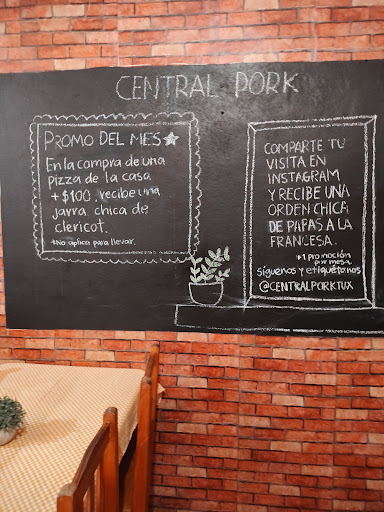 CENTRAL PORK
PROMO DEL MES
En la compra de una
pizza de la casa
+$100, recibe una
jarra chica de
clericot.
*No aplica para llevar.
COMPARTE TU
VISITA EN
INSTAGRAM
Y RECIBE UNA
ORDEN CHICA
DE PAPAS A LA
FRANCESA.
*1 promoción
por mesa.
Síguenos y etiquétanos
@CENTRALPORKTUX